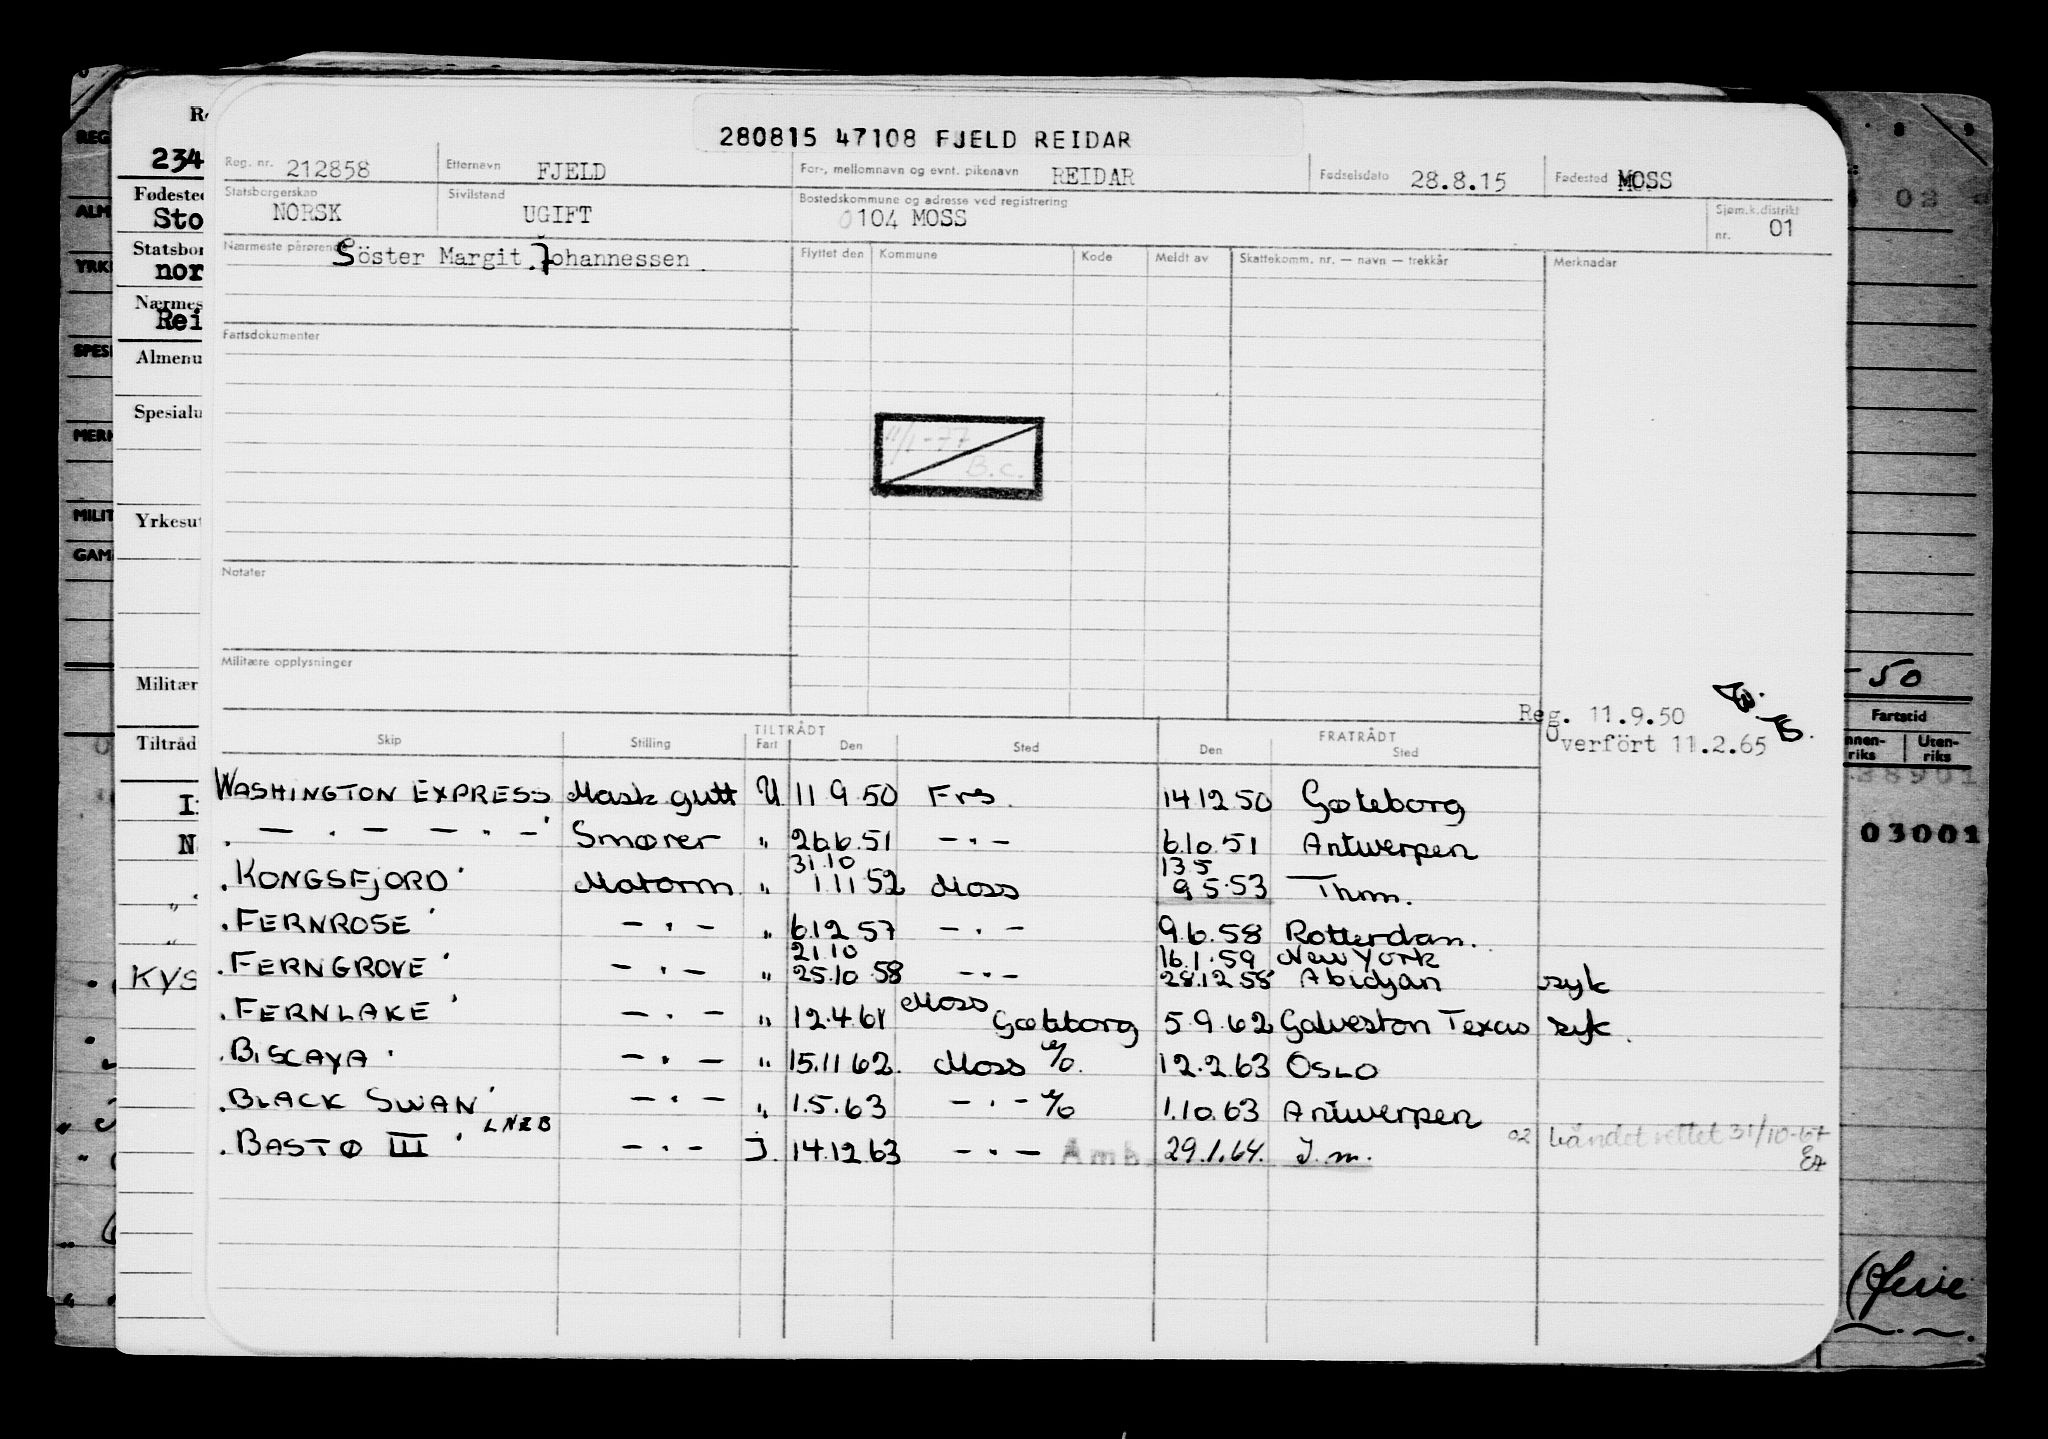 280815 47108 FJELD REIDAR
Reg. nr. 212858 Etternavn FJELD For-, mellomnavn og evnt. pikenavn REIDAR Fødselsdato 28.8.15 Fødested MOSS
Statsborgerskap NORSK Sivilstand UGIFT Bostedskommune og adresse ved registrering 0104 MOSS Sjøm.k.distrikt nr. 01
Nærmeste pårørende Söster Margit Johannessen Flyttet den Kommune Kode Meldt av Skattekomm. nr. — navn — trekkår Merknader
Fartsdokumenter
11/1-77
B.C.
Notater
Militære opplysninger
Reg. 11.9.50
Overfört 11.2.65
TILTRÅDT FRATRÅDT
Skip Stilling Fart Den Sted Den Sted
WASHINGTON EXPRESS Mask gutt U 11 9.50 Frs. 14 12 50 Gøteborg
— . — — . — Smører " 26.6.51 — . — 6.10.51 Antwerpen
31.10 13 5
KONGSFJORD Motorm. " 1.11 52 Moss 9 5.53 Thm.
FERNROSE — . — " 6.12 57 — . — 9.6.58 Rotterdam.
21.10 16.1.59 New York
FERNGROVE — . — " 25.10 58 — . — 28.12 58 Abidjan syk
FERNLAKE — . — " 12.4.61 Moss Gøteborg 5.9.62 Galveston Texas syk.
BISCAYA — . — " 15.11 62. Moss 12.2.63 OSLO
BLACK SWAN — . — " 1.5.63 — . — 1.10.63 Antwerpen
LNEB
BASTØ III — . — J. 14.12 63 — . — Amb. 29.1.64. J.m. 02 båndet rettet 31/10-67
Re
234
Fødested
Sto
Statsbor
nor
Nærmes
Rei
Almenu
Spesialu
Yrkesut
Militær
Tiltråd
KYS
REG
ALM
YRK
SPESI
MERK
MILIT
GAM
8 9
02
-50
Fartstid
nnen-riks Uten-riks
38901
03001